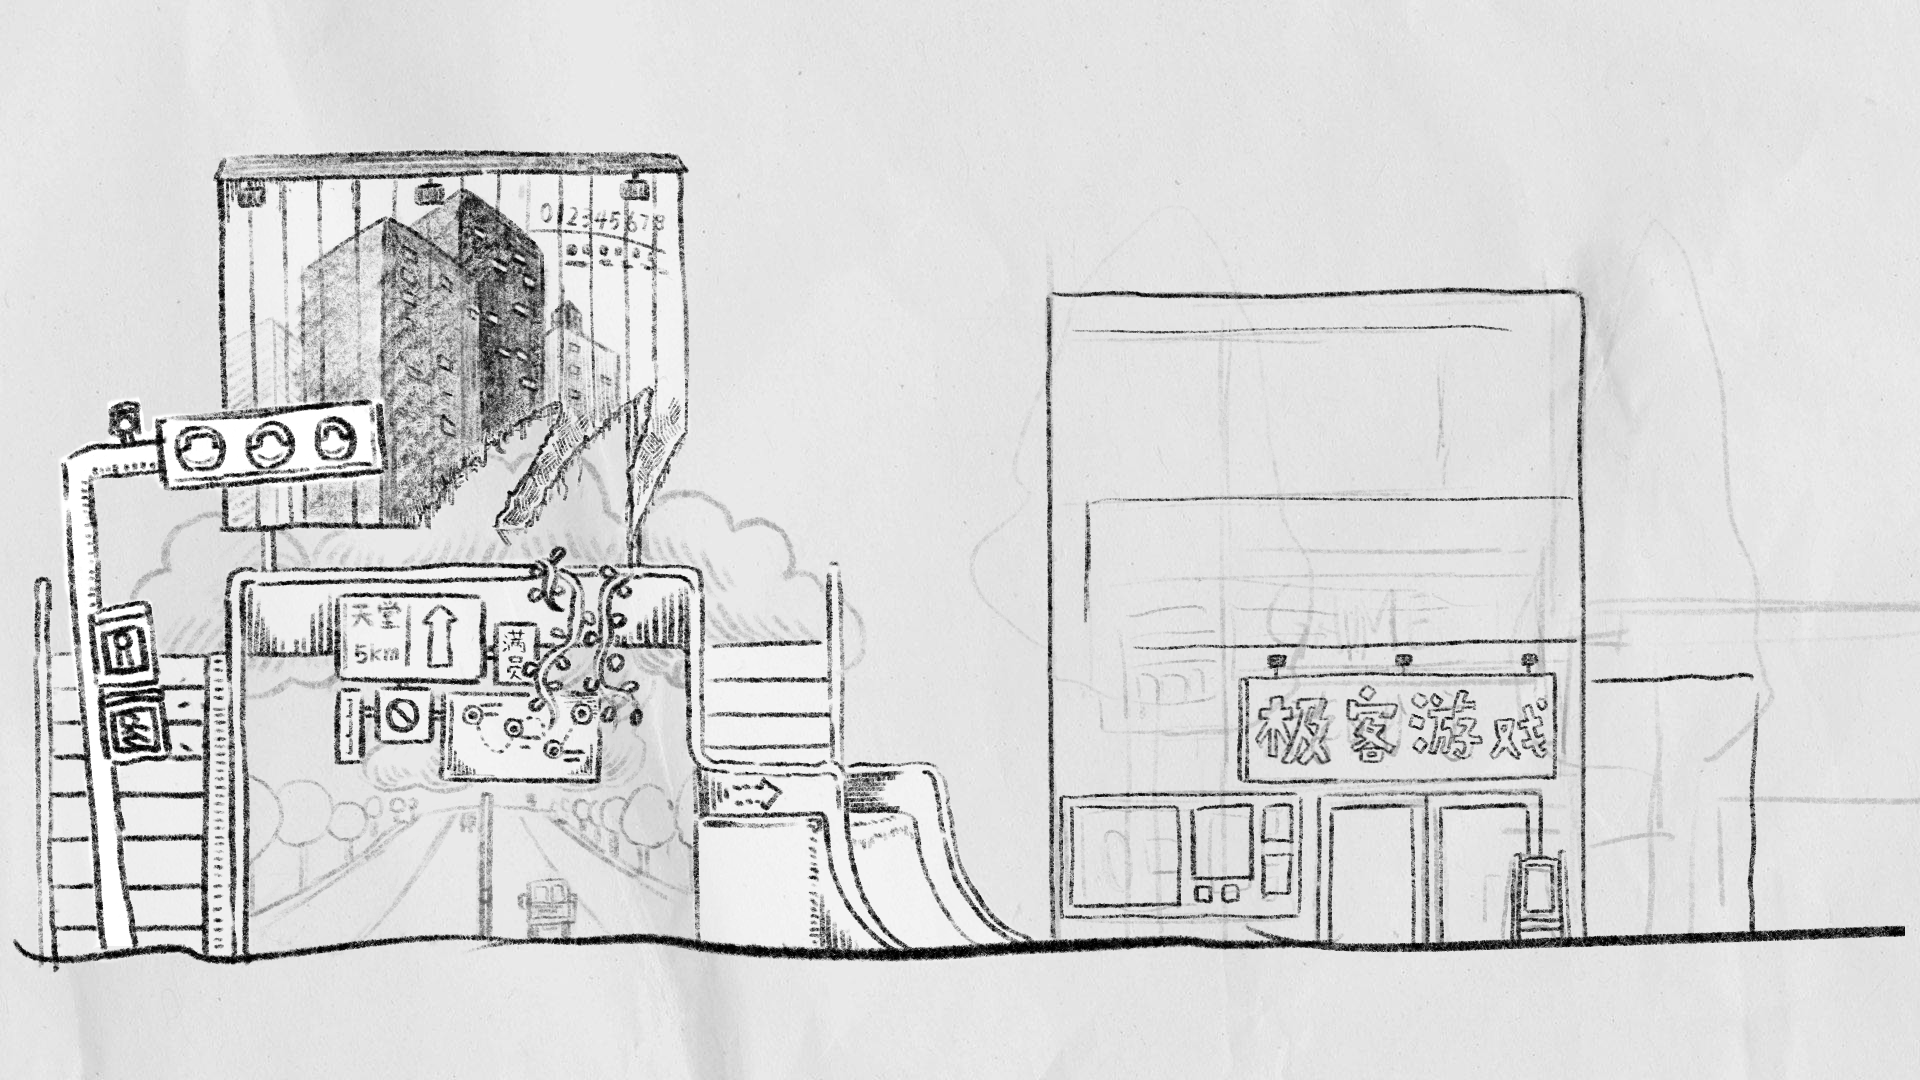 012345678
天堂
5km
满员
GAME
极客游戏